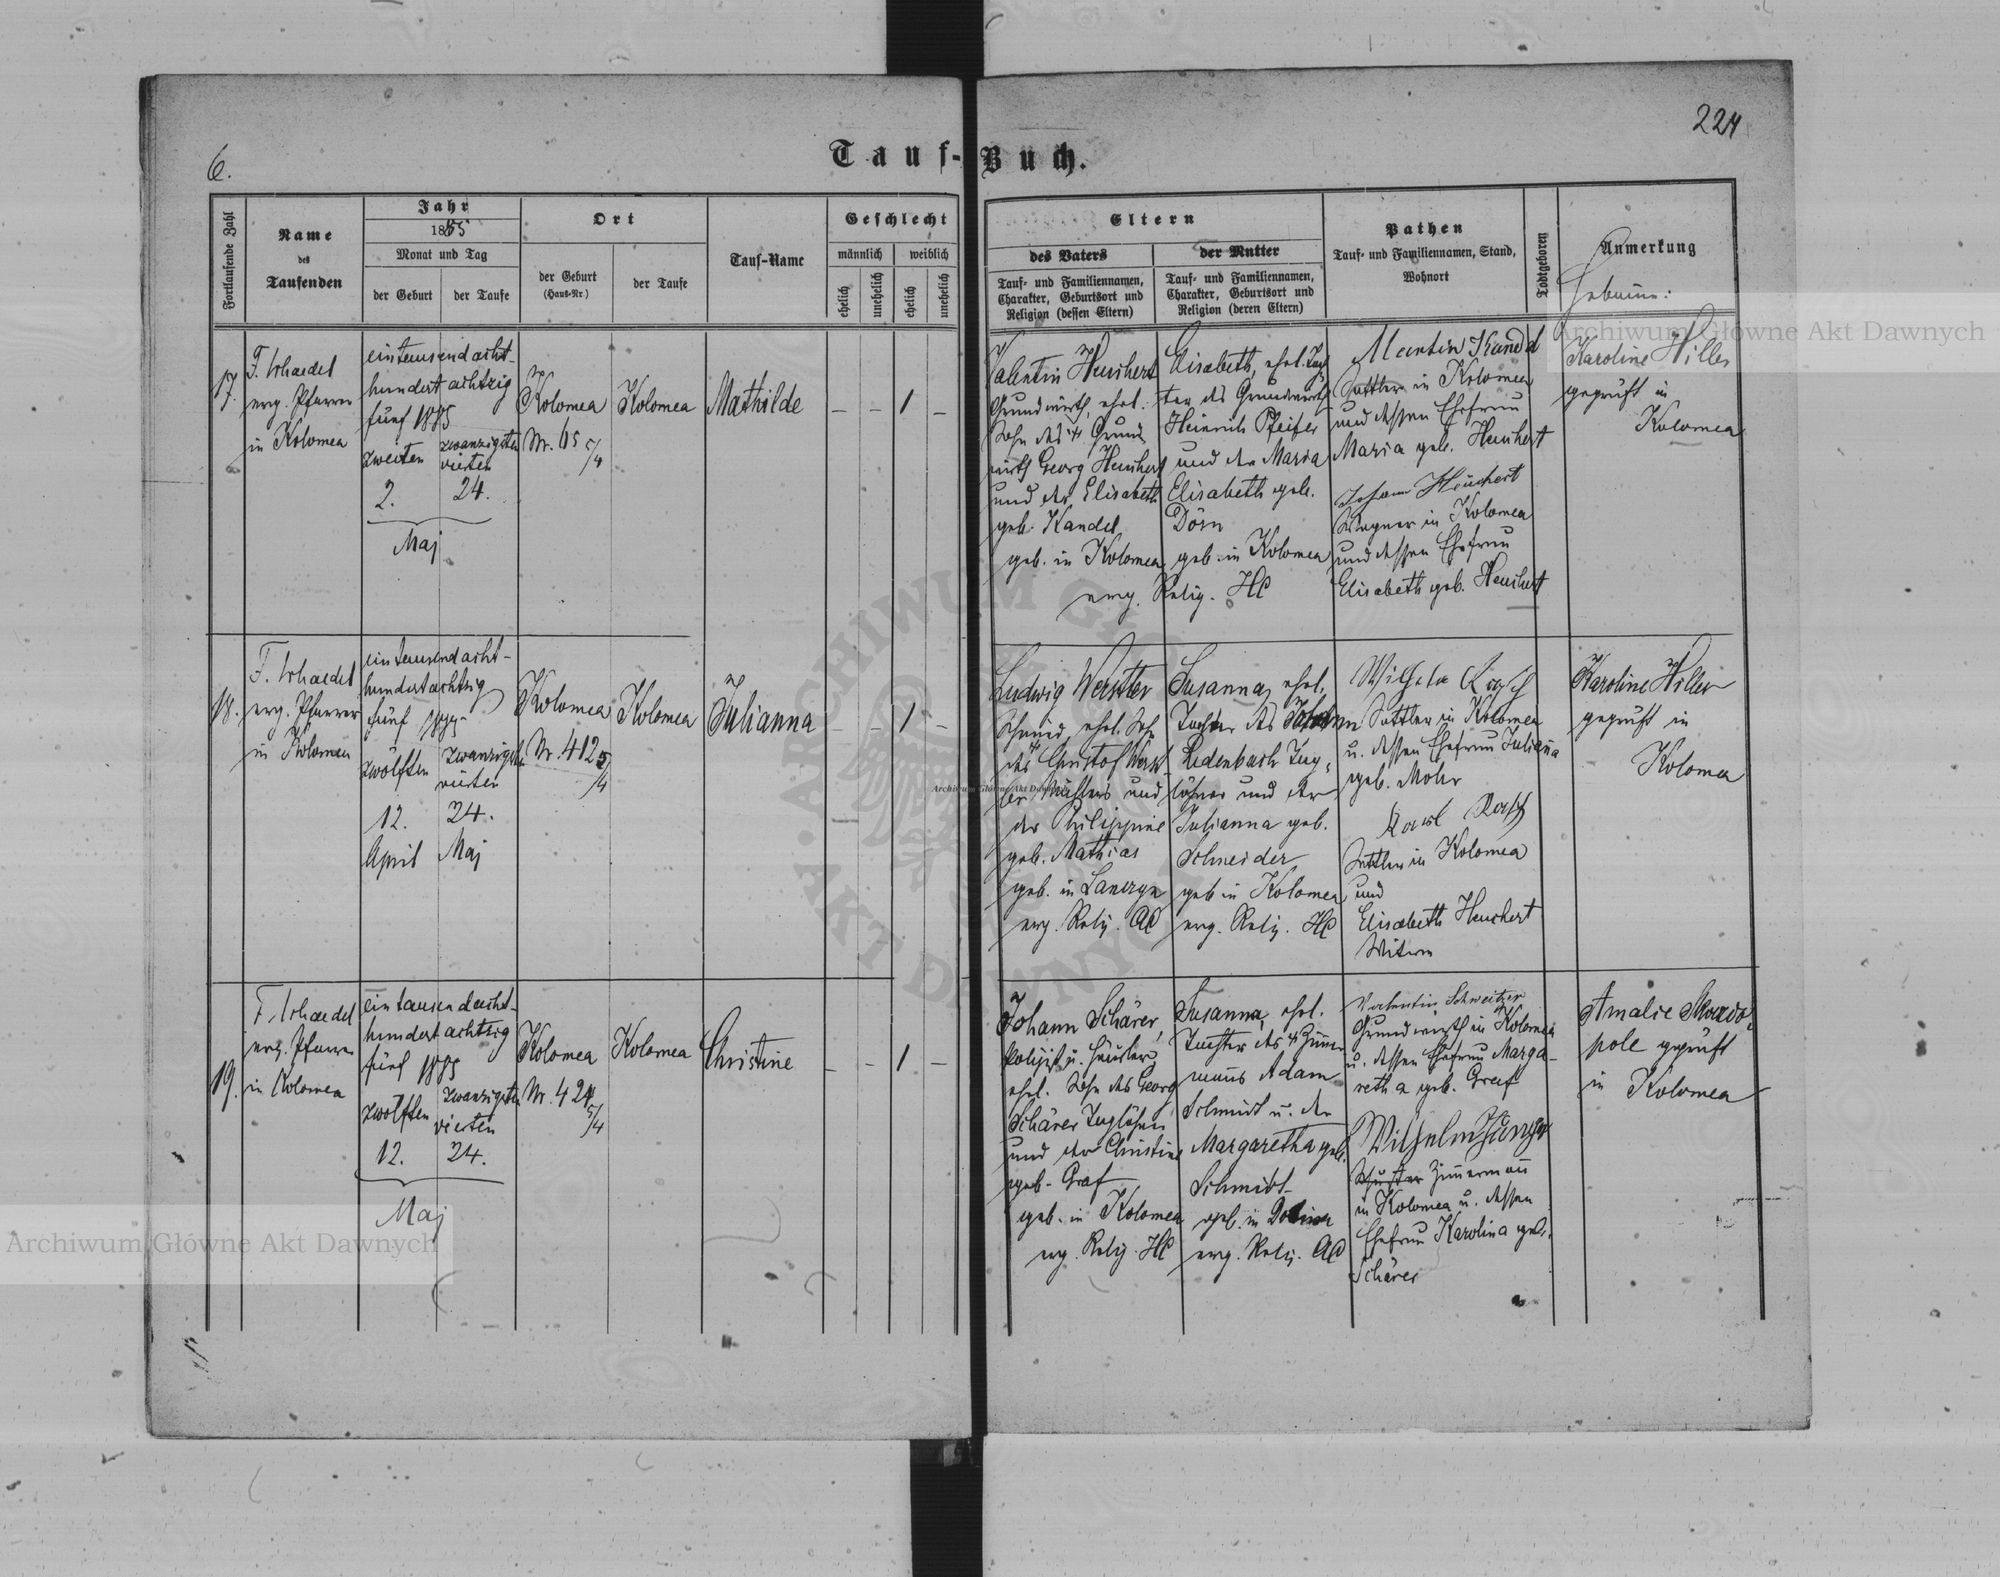 224
6.
Tauf-Buch.
Fortlaufende Zahl
Name
des
Taufenden
Jahr
1885
Monat und Tag
der Geburt
der Taufe
Ort
der Geburt
(Haus-Nr.)
der Taufe
Tauf-Name
Geschlecht
männlich
weiblich
ehelich
unehelich
ehelich
unehelich
Eltern
des Vaters
Tauf- und Familiennamen,
Charakter, Geburtsort und
Religion (dessen Eltern)
der Mutter
Tauf- und Familiennamen,
Charakter, Geburtsort und
Religion (deren Eltern)
Pathen
Tauf- und Familiennamen, Stand,
Wohnort
Todtgeboren
Anmerkung
17.
evg. Pfarrer
in Kolomea
eintausendacht-
hundert achtzig
fünf 1885
zweiten
2.
zwanzigsten
vierten
24.
Maj
Kolomea
Nr.
Kolomea
Mathilde
– – 1 –
Valentin Heuchert
Grundwirth, ehel.
Sohn des Grund
wirth Georg Heuchert
und der Elisabeth
geb. Kandel
geb. in Kolomea
Elisabeth, ehel. Toch
ter des Grundwirth
Heinrich Pfeifer
und der Maria
Elisabeth geb.
Dörn
geb. in Kolomea
evg. Relig. HC
Martin Kandel
Sattler in Kolomea
und dessen Ehefrau
Maria geb. Heuchert
Johann Heuchert
Wagner in Kolomea
und dessen Ehefrau
Elisabeth geb. Heuchert
Karoline Hiller
geprüft in
Kolomea
18.
evg. Pfarrer
in Kolomea
eintausendacht-
hundertachtzig
fünf 1885
zwölften
12.
April
zwanzigsten
vierten
24.
Maj
Kolomea
Nr. 412
Kolomea
Julianna
– – 1 –
Ludwig
Schmied, ehel. Sohn
des Christof
Müllers und
der Philippine
geb. Mathias
geb. in
evg. Relig. AC
Susanna, ehel.
Tochter des Johann
Redenbach Tag-
löhner und der
Julianna geb.
Schneider
geb in Kolomea
evg. Relig. HC
Wilhelm
Sattler in Kolomea
u. dessen Ehefrau Julianna
geb. Mohr
Karl
Sattler in Kolomea
und
Elisabeth Heuchert
Witwe
Karoline Hiller
geprüft in
Kolomea
19.
evg. Pfarrer
in Kolomea
eintausendacht-
hundert achtzig
fünf 1885
zwölften
12.
zwanzigsten
vierten
24.
Maj
Kolomea
Nr.
Kolomea
Christine
– – 1 –
Johann Schärer,
Polizist u. Häusler
ehel. Sohn des Georg
Schärer Taglöhner
und der Christine
geb. Graf
geb. in Kolomea
evg. Relig. HC
Susanna, ehel.
Tochter des Zimmer
manns Adam
Schmidt u. der
Margaretha geb.
Schmidt
geb. in Dolina
evg. Relig. AC
Valentin Schweitzer
Grundwirth in Kolomea
u. dessen Ehefrau Marga-
retha geb. Graf
Wilhelm
Zimermann
in Kolomea u. dessen
Ehefrau Karolina geb.
Schärer
Amalie
geprüft
in Kolomea
Archiwum Główne Akt Dawnych
Archiwum Główne Akt Dawnych
Archiwum Główne Akt Dawnych
ARCHIWUM GŁÓWNE AKT DAWNYCH